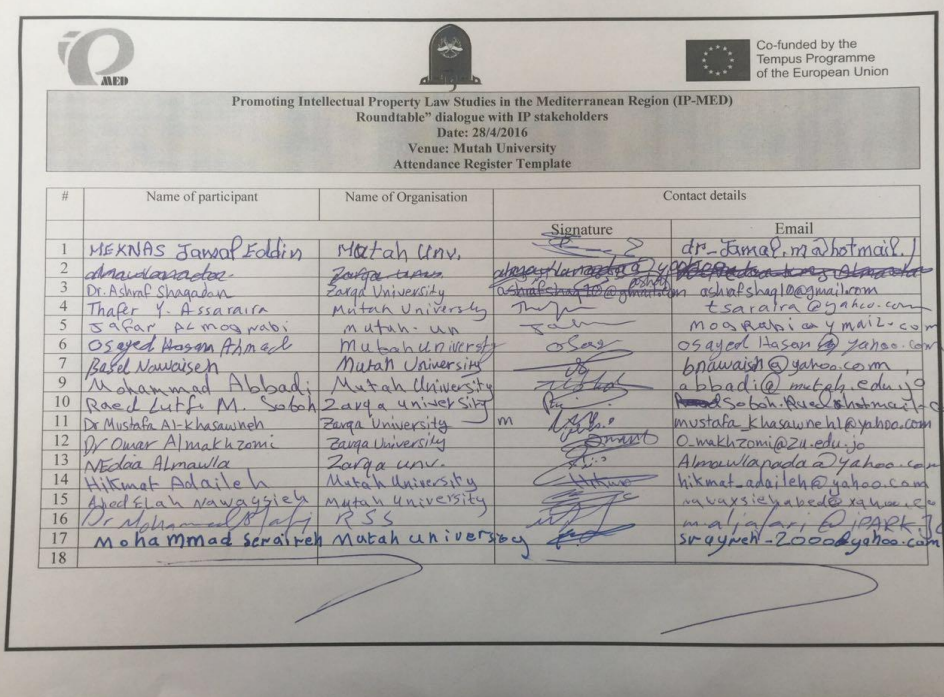 iP MED
Co-funded by the
Tempus Programme
of the European Union
Promoting Intellectual Property Law Studies in the Mediterranean Region (IP-MED)
Roundtable” dialogue with IP stakeholders
Date: 28/4/2016
Venue: Mutah University
Attendance Register Template
# Name of participant Name of Organisation Contact details
Signature Email
1 MEKNAS Jamal Eddin Mutah Unv.
2
3 Dr. Ashraf Shagadan Zarqa University ashrafshaq10@gmail.com
4 Thafer Y. Assaraira Mutah University tsaraira@yahoo.com
5 Jafar ALmograbi mutah-un
6 Osayed Hasan Ahmad Mutah university osayed Hasan@yahoo.com
7 Basel Nawaiseh Mutah University bnawaish@yahoo.com
9 Mohammad Abbadi Mutah University abbadi@mutah.edu.jo
10 Raed Lutfi M. Saboh Zarqa university
11 Dr Mustafa Al-khasawneh Zarqa University m mustafa_khasawneh1@yahoo.com
12 Dr Omar Almakhzomi Zarqa University o_makhzomi@zu.edu.jo
13 NEdaa Almawlla Zarqa unv. Almawllanada@yahoo.com
14 Hikmat Adaileh Mutah University hikmat_adaileh@yahoo.com
15 Ahed Elah Nawaysieh Mutah University
16 Dr Mohammed RSS
17 Mohammad Seraireh Mutah university srayreh-2000@yahoo.com
18